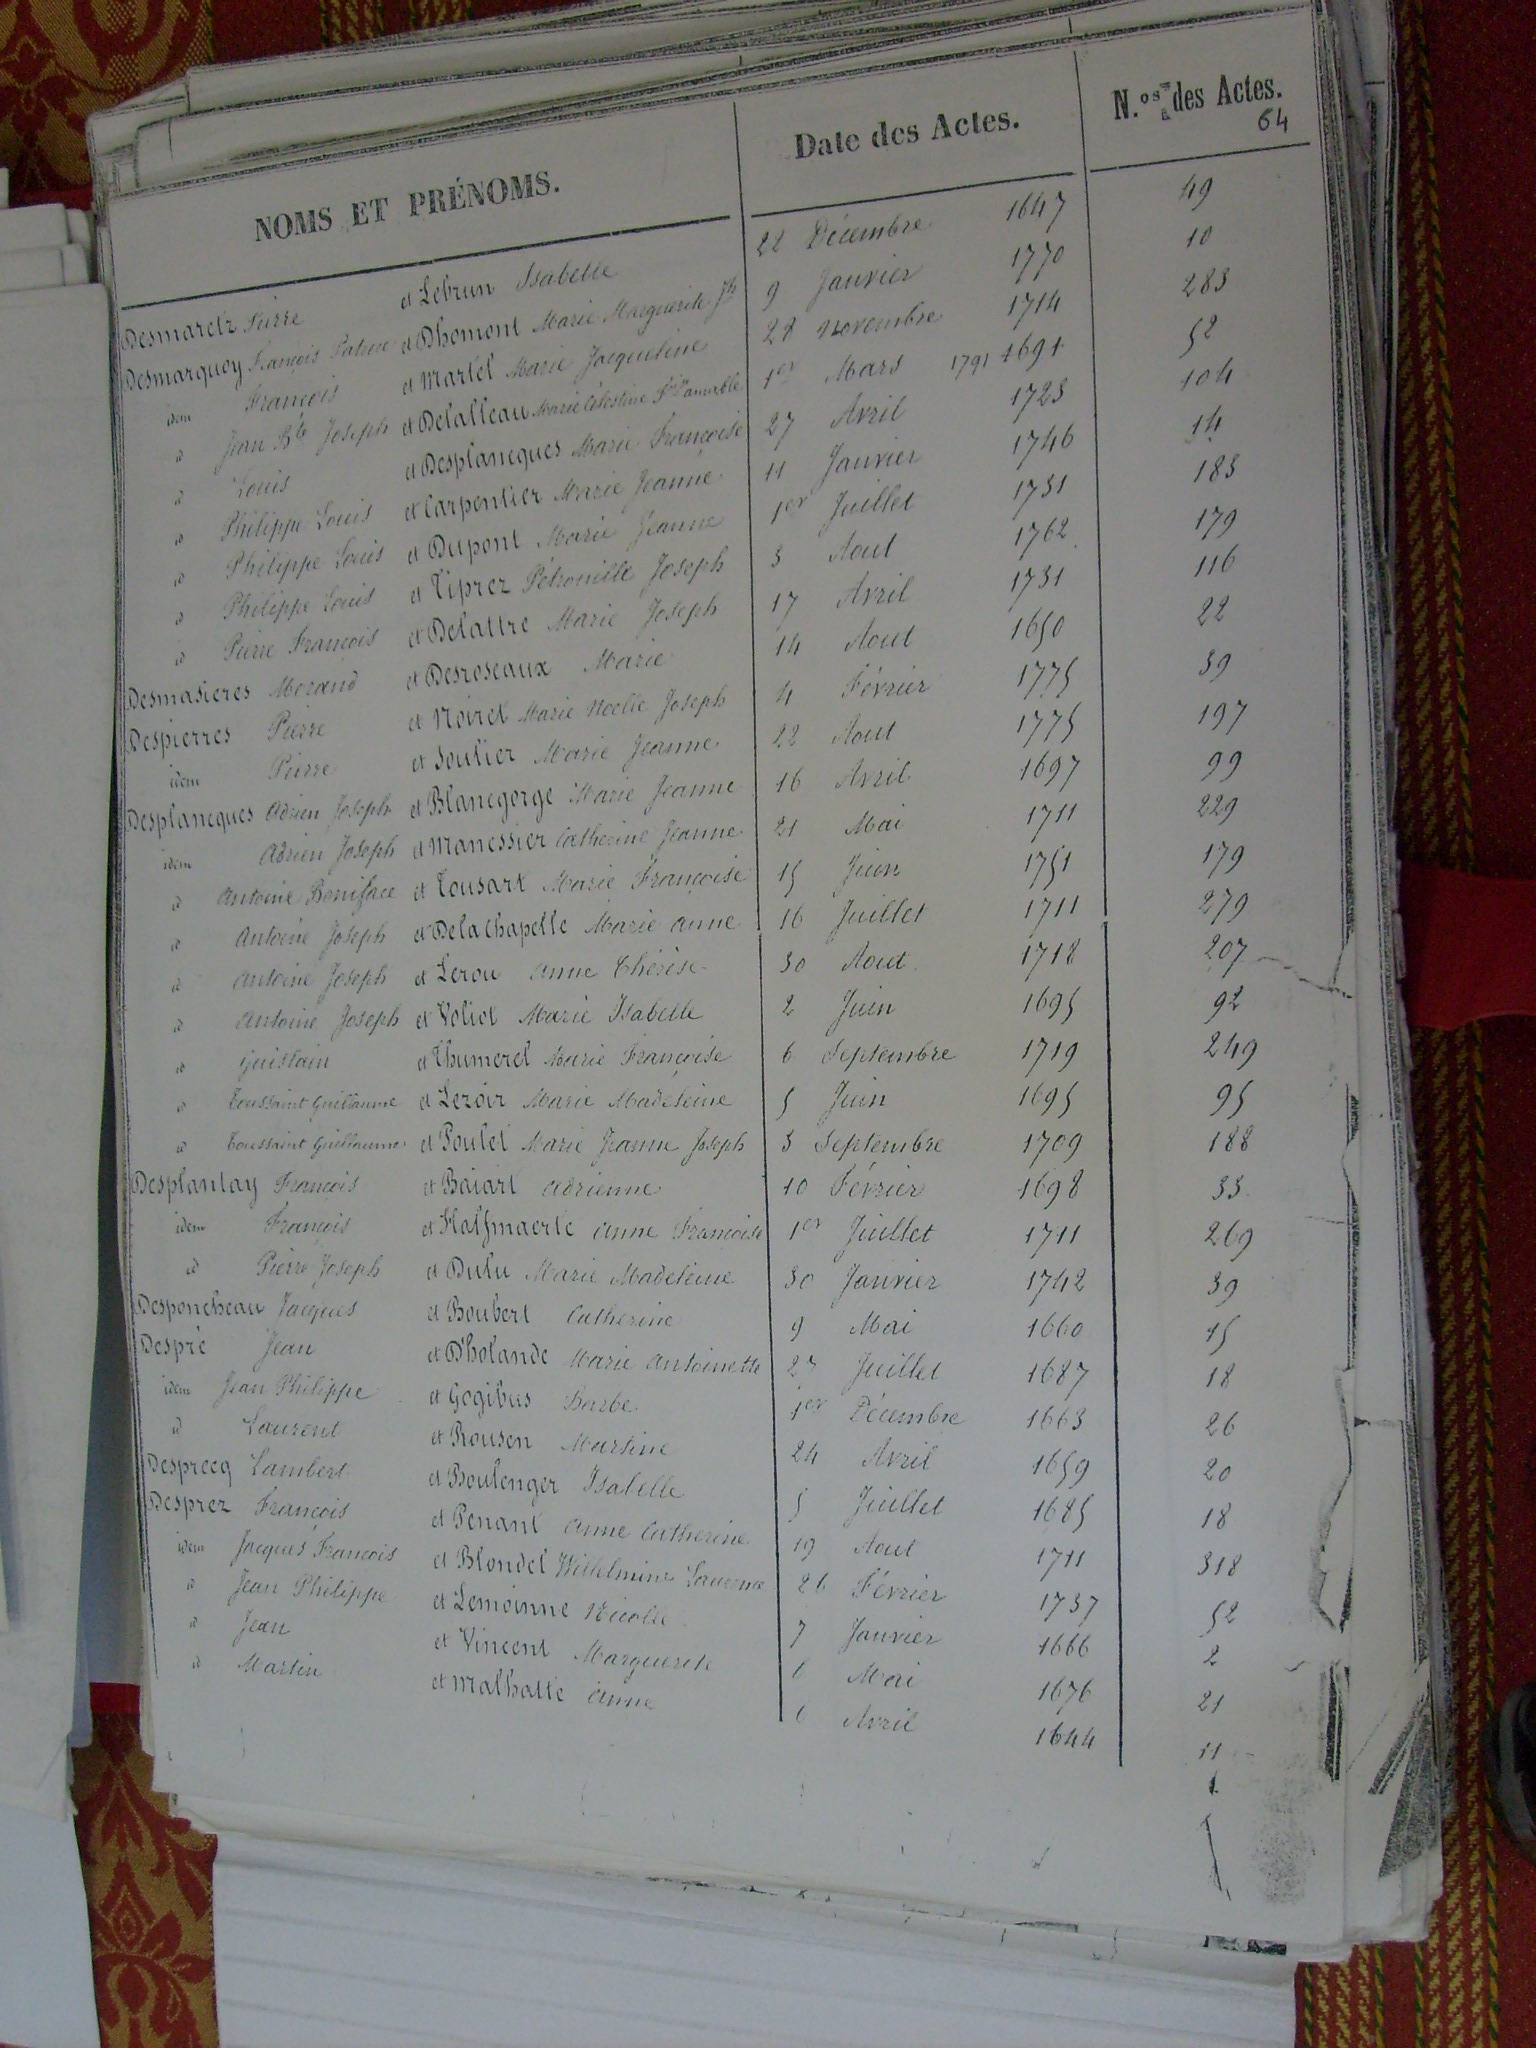 NOMS ET PRÉNOMS. Date des Actes. N.os des Actes.
64
Desmaretz Pierre et Lebrun Isabelle 22 Décembre 1647 49
Desmarquoy François Patrice et Dhomont Marie Marguerite Jh 9 Janvier 1770 10
idem François et Martel Marie Jacqueline 28 Novembre 1714 283
id Jean Bte Joseph et Delalleau Marie Célestine amable 1er Mars 1791 1691 52
id Louis et Desplancques Marie Françoise 27 Avril 1723 104
id Philippe Louis et Carpentier Marie Jeanne 11 Janvier 1746 14
id Philippe Louis et Dupont Marie Jeanne 1er Juillet 1731 183
id Philippe Louis et Tiprez Pétronille Joseph 3 Aout 1762 179
id Pierre François et Delattre Marie Joseph 17 Avril 1731 116
Desmasieres Morand et Desroseaux Marie 14 Aout 1650 22
Despierres Pierre et Noirel Marie Noelle Joseph 4 Février 1775 39
idem Pierre et Soutier Marie Jeanne 22 Aout 1775 197
Desplancques Adrien Joseph et Blancgorge Marie Jeanne 16 Avril 1697 99
idem Adrien Joseph et Manessier Catherine Jeanne 21 Mai 1711 229
id Antoine Boniface et Tousart Marie Françoise 15 Juin 1751 179
id Antoine Joseph et Delachapelle Marie Anne 16 Juillet 1711 279
id Antoine Joseph et Lerou Anne Thérèse 30 Aout 1718 207
id Antoine Joseph et Voliot Marie Isabelle 2 Juin 1695 92
id Guislain et Thumerel Marie Françoise 6 Septembre 1719 249
id Toussaint Guillaume et Lezoir Marie Madeleine 5 Juin 1695 95
id Toussaint Guillaume et Poulet Marie Jeanne Joseph 3 Septembre 1709 188
Desplantay François et Baiart Adrienne 10 Février 1698 33
idem François et Halsmaerte Anne Françoise 1er Juillet 1711 269
id Pierre Joseph et Dulu Marie Madeleine 30 Janvier 1742 39
Desponcheau Jacques et Boubert Catherine 9 Mai 1660 15
Despré Jean et D'holande Marie Antoinette 27 Juillet 1687 18
idem Jean Philippe et Gogibus Barbe 1er Décembre 1663 26
id Laurent et Rousen Martine 24 Avril 1659 20
Desprecq Lambert et Boulenger Isabelle 5 Juillet 1685 18
Desprez François et Penant Anne Catherine 19 Aout 1711 318
idem Jacques François et Blondel Wilhelmine 26 Février 1737 52
id Jean Philippe et Lemoinne Nicolle 7 Janvier 1666 2
id Jean et Vincent Marguerite 6 Mai 1676 21
id Martin et Malhatte Anne 6 Avril 1644 11